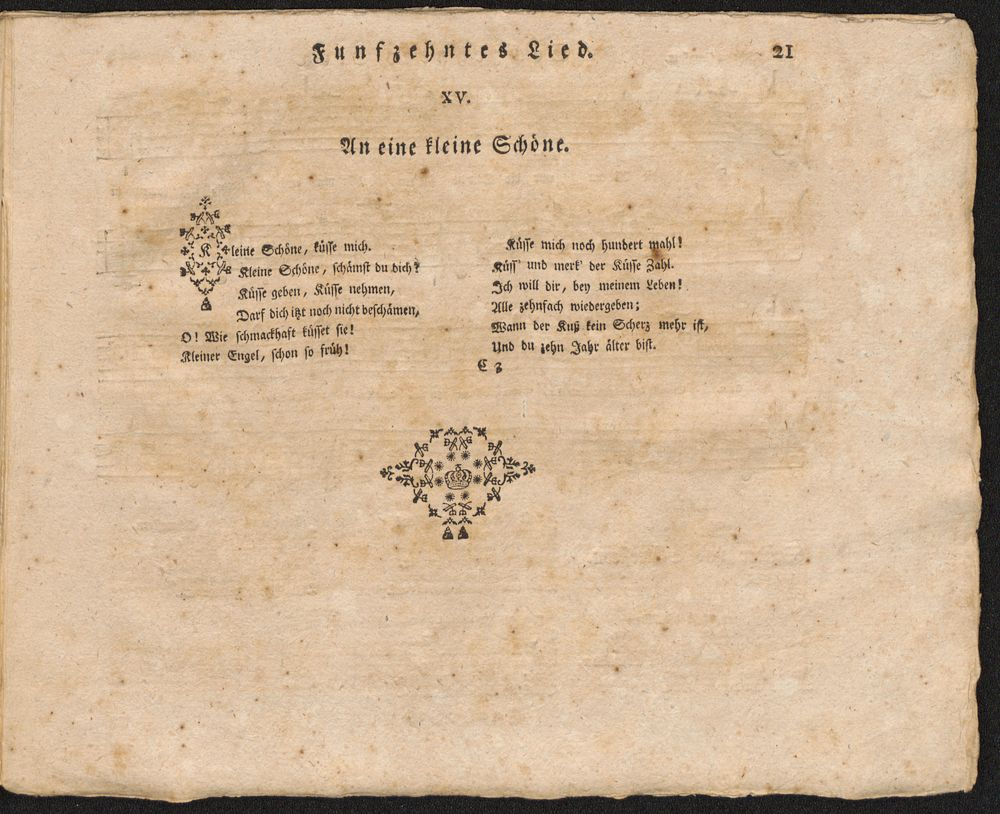 Funfzehntes Lied. 21
XV.
An eine kleine Schöne.
Kleine Schöne, küsse mich.
Kleine Schöne, schämst du dich?
Küsse geben, Küsse nehmen,
Darf dich itzt noch nicht beschämen,
O! Wie schmackhaft küsset sie!
Kleiner Engel, schon so früh!
Küsse mich noch hundert mahl!
Küss' und merk' der Küsse Zahl.
Ich will dir, bey meinem Leben!
Alle zehnfach wiedergeben;
Wann der Kuß kein Scherz mehr ist,
Und du zehn Jahr älter bist.
C 3